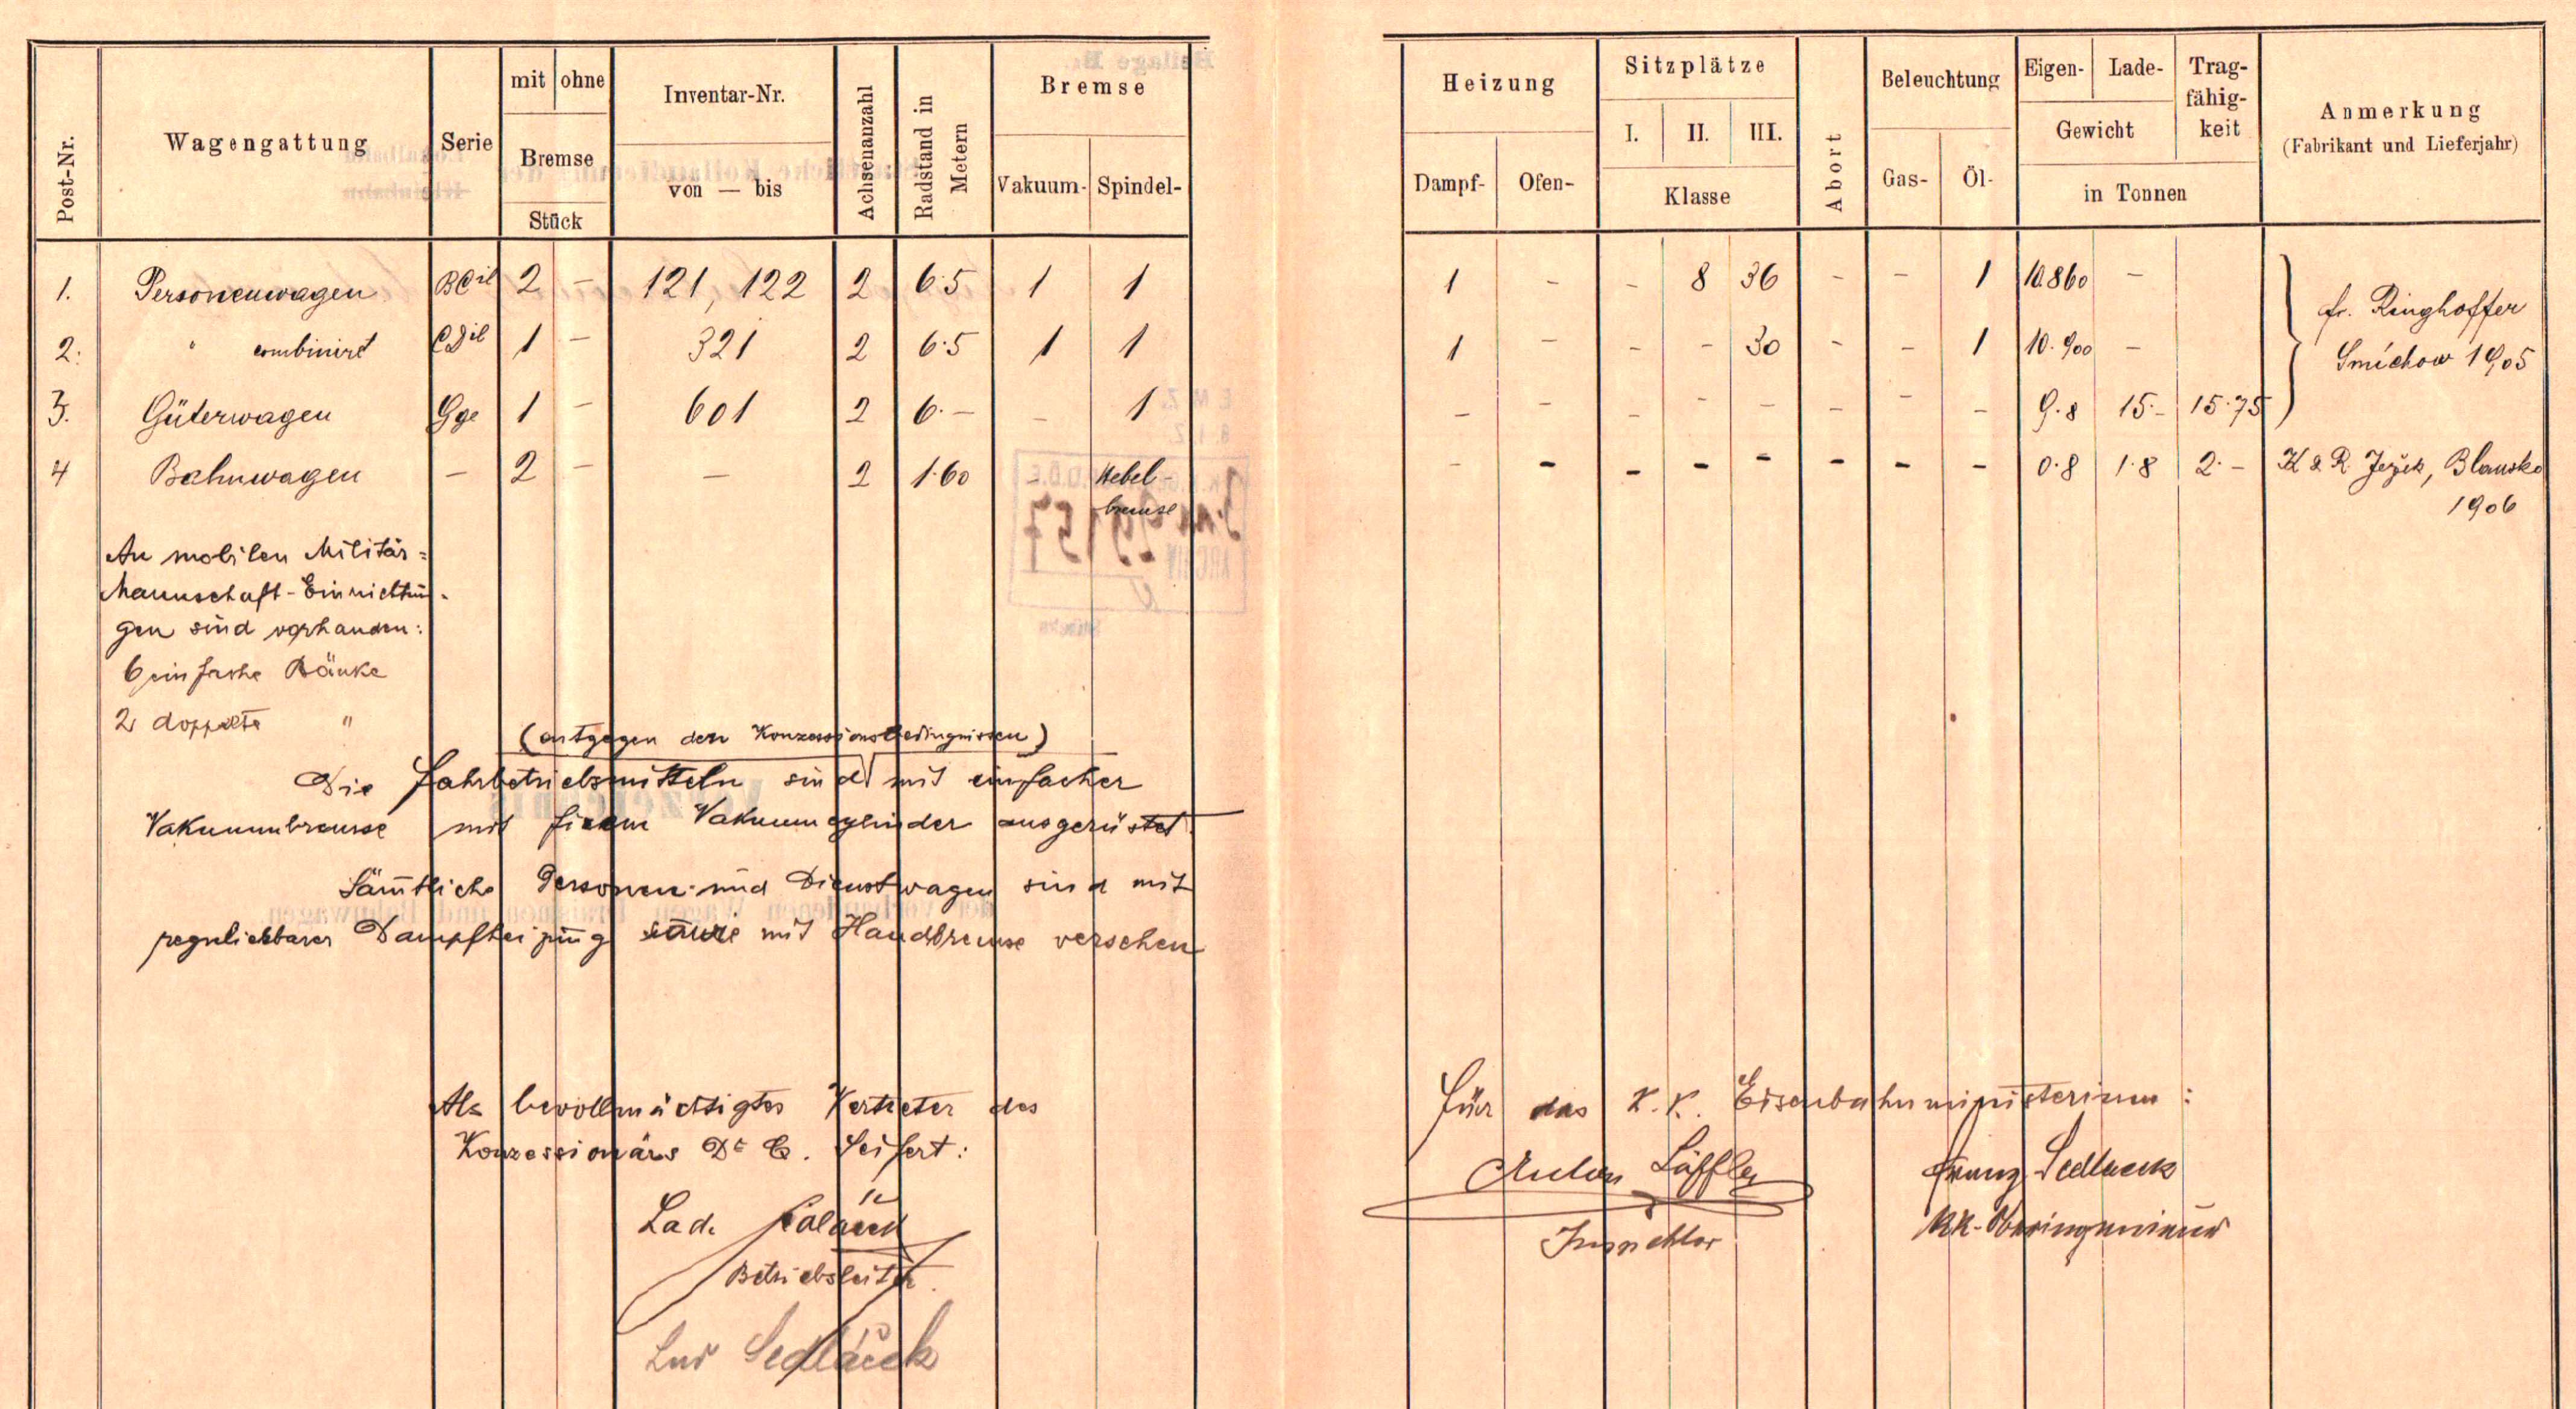 Post-Nr. Wagengattung Serie mit ohne Bremse Stück Inventar-Nr. von — bis Achsenanzahl Radstand in Metern Bremse Vakuum- Spindel- Heizung Dampf- Ofen- Sitzplätze I. II. III. Klasse Abort Beleuchtung Gas- Öl- Eigen- Lade- Gewicht Trag-fähig-keit in Tonnen Anmerkung (Fabrikant und Lieferjahr)
1. Personenwagen BCil 2 — 121, 122 2 6·5 1 1 1 - - 8 36 - - 1 10.860 -
2. " combinirt CDil 1 — 321 2 6·5 1 1 1 - - - 30 - - 1 10.900 -
fr. Ringhoffer
Smíchow 1905
3. Güterwagen Gge 1 — 601 2 6·— - 1 - - - - - - - - 9·8 15·- 15·75
4 Bahnwagen — 2 — — 2 1·60 Hebel- - - - - - - - - 0·8 1·8 2·- K & R Ježek, Blansko
bremse 1906
An mobilen Militär=
Mannschaft-Einrichtun-
gen sind vorhanden:
6 einfache Bänke
2 doppelte "
(entgegen den Konzessionsbedingnissen)
Die Fahrbetriebsmitteln sind mit einfacher
Vakuumbremse mit fixem Vakuumcylinder ausgerüstet.
Sämtliche Personen- und Dienstwagen sind mit
regulierbarer Dampfheizung sowie mit Handbremse versehen
Als bevollmächtigter Vertreter des
Konzessionärs Dr C. Seifert:
Lad.
Betriebsleiter.
Sedláček
Für das K.K. Eisenbahnministerium:
Anton Löffler
Inspektor
Franz Sedlacek
KK-Oberingenieur